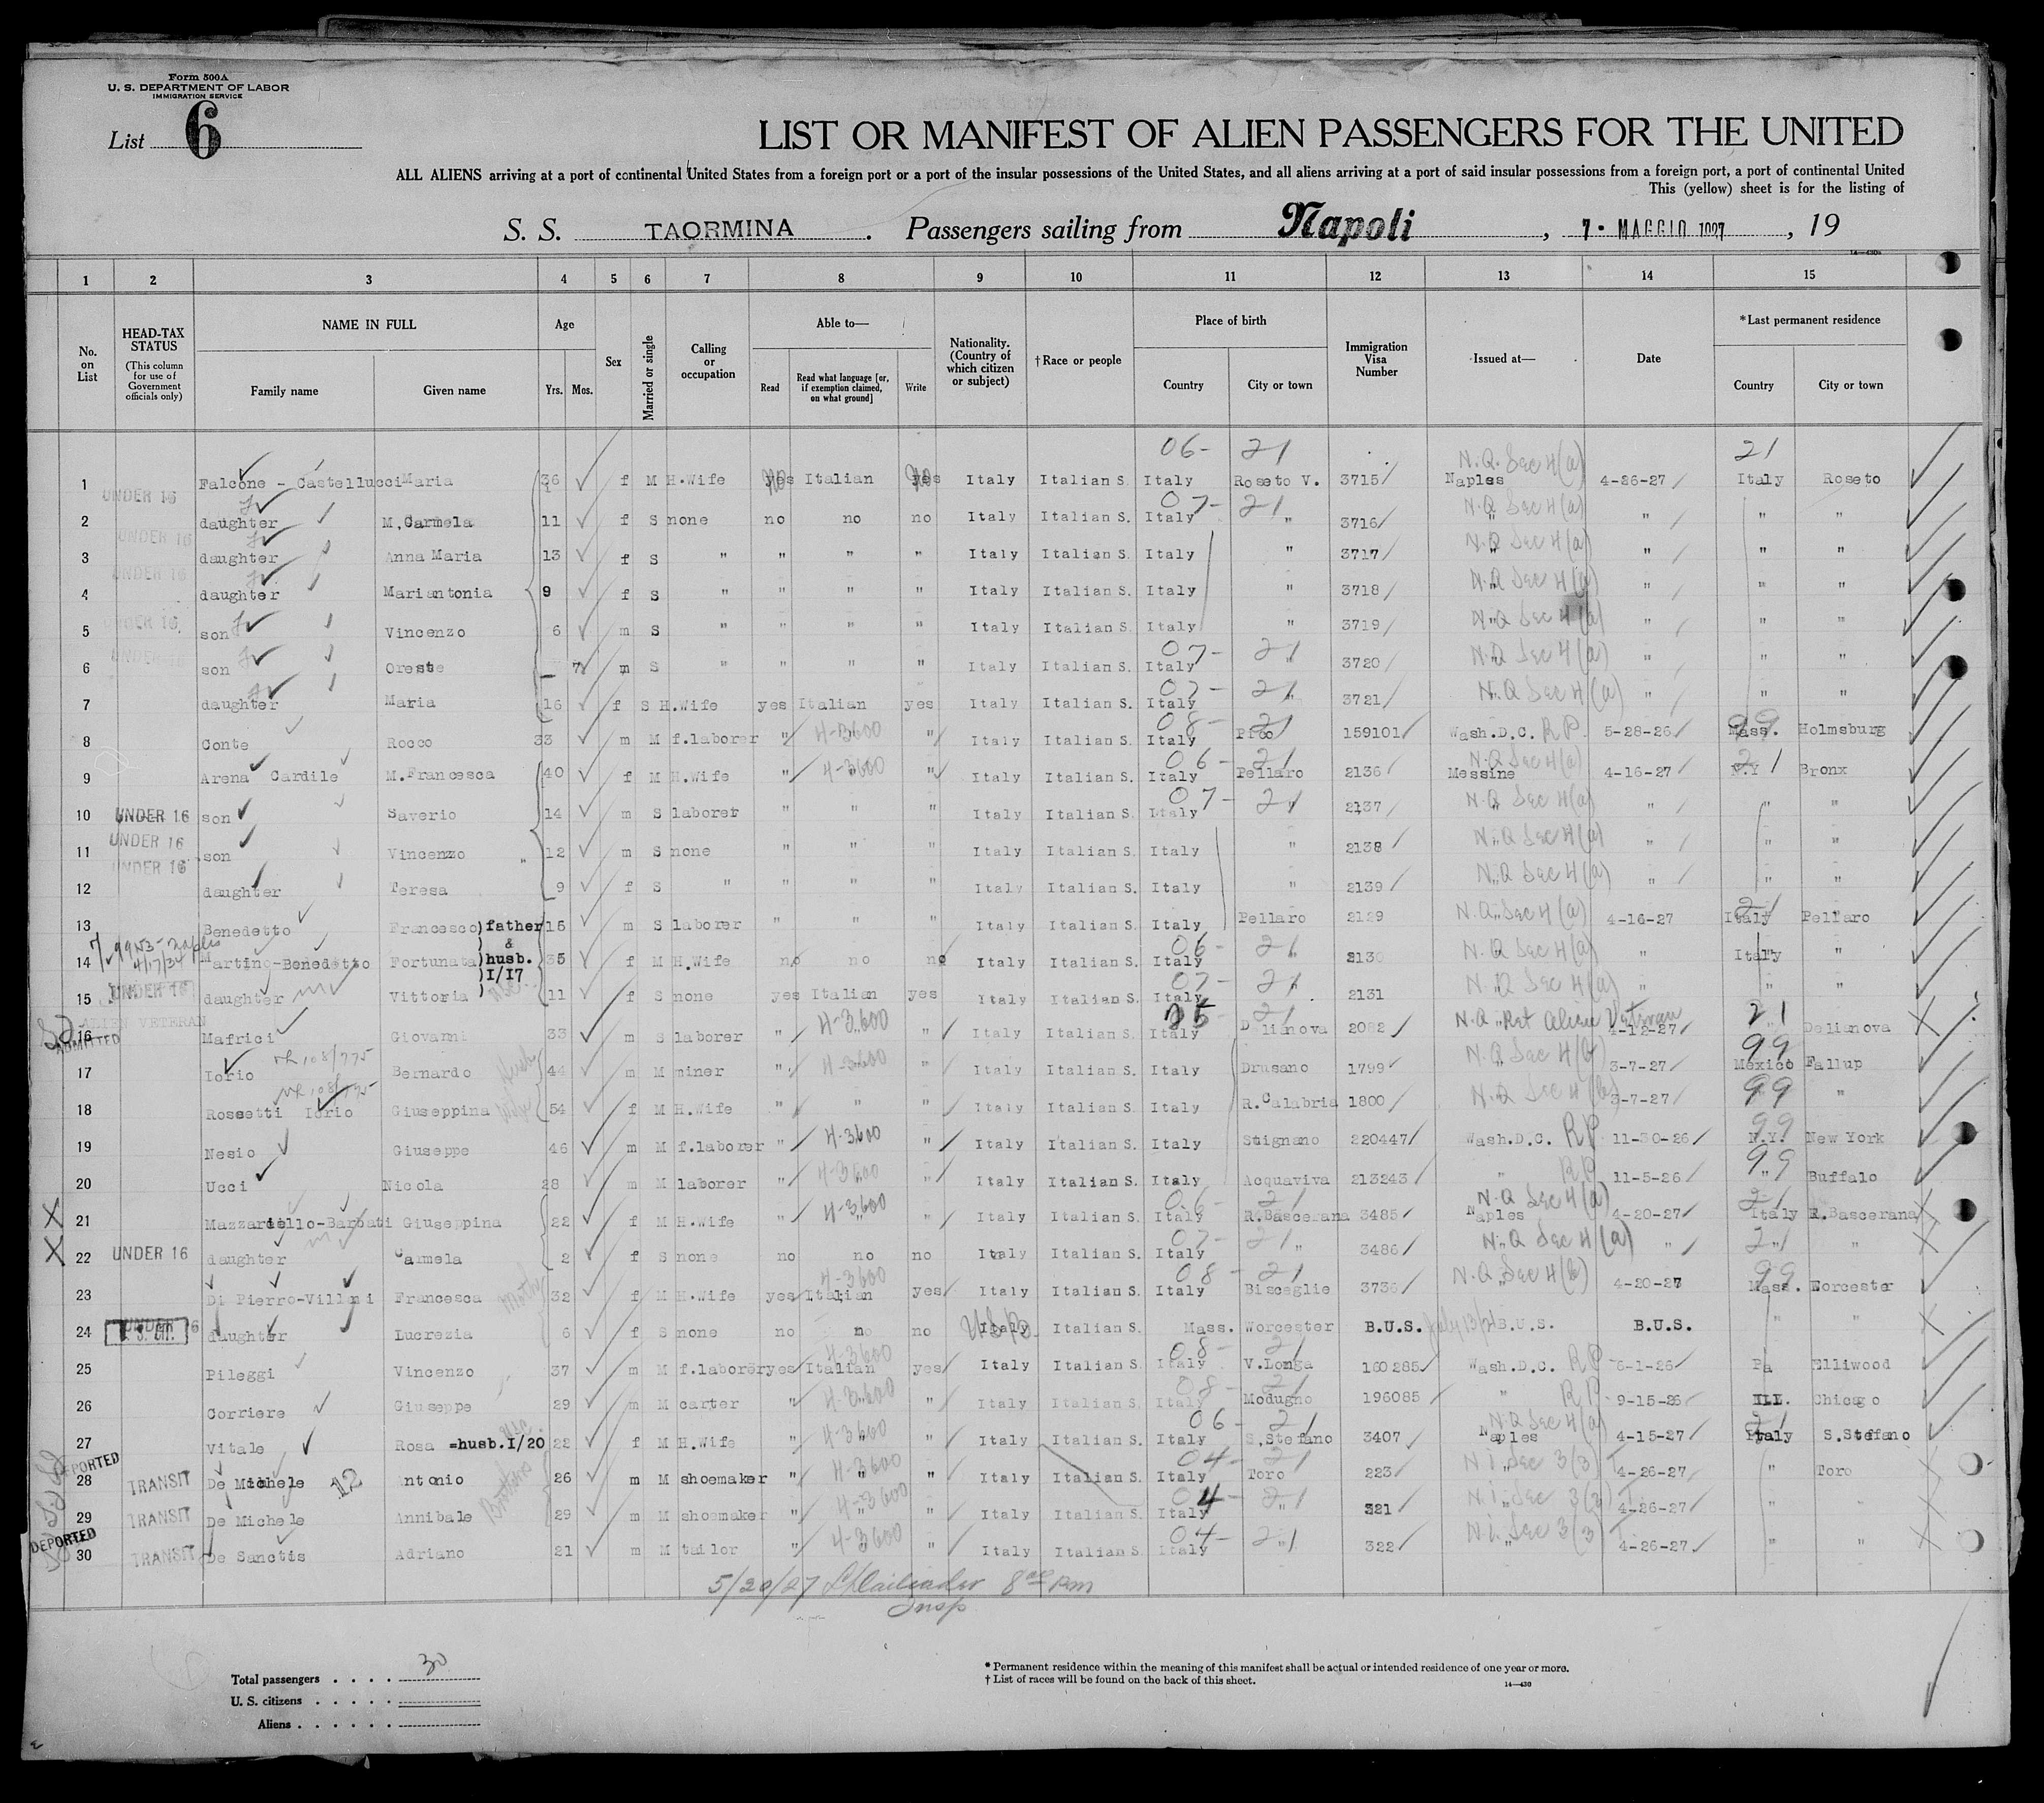 Form 500A
U. S. DEPARTMENT OF LABOR
IMMIGRATION SERVICE
List 6
LIST OR MANIFEST OF ALIEN PASSENGERS FOR THE UNITED
ALL ALIENS arriving at a port of continental United States from a foreign port or a port of the insular possessions of the United States, and all aliens arriving at a port of said insular possessions from a foreign port, a port of continental United
This (yellow) sheet is for the listing of
S. S. TAORMINA. Passengers sailing from Napoli, 7 · MAGGIO 1927, 19
14—430
1 2 3 4 5 6 7 8 9 10 11 12 13 14 15
No. on List
HEAD-TAX STATUS (This column for use of Government officials only)
NAME IN FULL Family name Given name
Age Yrs. Mos.
Sex
Married or single
Calling or occupation
Able to— Read Read what language [or, if exemption claimed, on what ground] Write
Nationality. (Country of which citizen or subject)
†Race or people
Place of birth Country City or town
Immigration Visa Number
Issued at—
Date
*Last permanent residence Country City or town
06- 21 N.Q. Sec 4(a) 21
1 Falcone - Castellucci Maria 36 f M H.Wife Italian Italy Italian S. Italy Roseto V. 3715 Naples 4-26-27 Italy Roseto
UNDER 16 07- 21 N.Q Sec 4(a)
2 daughter M.Carmela 11 f S none no no no Italy Italian S. Italy " 3716 " " " "
UNDER 16 N.Q Sec 4(a)
3 daughter Anna Maria 13 f S " " " " Italy Italian S. Italy " 3717 " " " "
UNDER 16 N.Q Sec 4(a)
4 daughter Mariantonia 9 f S " " " " Italy Italian S. Italy " 3718 " " " "
UNDER 16 N.Q Sec 4(a)
5 son Vincenzo 6 m S " " " " Italy Italian S. Italy " 3719 " " " "
UNDER 16 07- 21 N.Q Sec 4(a)
6 son Oreste 7 m S " " " " Italy Italian S. Italy " 3720 " " " "
07- 21 N.Q Sec 4(a)
7 daughter Maria 16 f S H.Wife yes Italian yes Italy Italian S. Italy " 3721 " " " "
4-3600 08- 21 RP 99
8 Conte Rocco 33 m M f.laborer " " " Italy Italian S. Italy 159101 Wash.D.C. 5-28-26 Mass. Holmsburg
4-3600 06- 21 N.Q Sec 4(a) 21
9 Arena Cardile M.Francesca 40 f M H.Wife " " " Italy Italian S. Italy Pellaro 2136 Messine 4-16-27 N.Y Bronx
07- 21 N.Q Sec 4(a)
10 UNDER 16 son Saverio 14 m S laborer " " " Italy Italian S. Italy " 2137 " " " "
UNDER 16 N.Q Sec 4(a)
11 son Vincenzo 12 m S none " " " Italy Italian S. Italy " 2138 " " " "
UNDER 16 N.Q Sec 4(a)
12 daughter Teresa 9 f S " " " " Italy Italian S. Italy " 2139 " " " "
N.Q Sec 4(a) 21
13 Benedetto Francesco ) father 15 m S laborer " " " Italy Italian S. Italy Pellaro 2129 " 4-16-27 Italy Pellaro
& 4/17/34 06- 21 N.Q Sec 4(a)
14 Martino-Benedetto Fortunata ) husb. 35 f M H.Wife no no no Italy Italian S. Italy " 2130 " " Italy "
) I/17 07- 21 N.Q Sec 4(a)
15 UNDER 16 daughter Vittoria ) 11 f S none yes Italian yes Italy Italian S. Italy " 2131 " " " "
ALIEN VETERAN 4-3600 25 N.Q Ret Alien Veteran 21
16 ADMITTED Mafrici Giovanni 33 m S laborer " " " Italy Italian S. Italy Delianova 2082 " 4-12-27 " Delianova
4-3600 N.Q Sec 4(b) 99
17 Iorio Bernardo 44 m M miner " " " Italy Italian S. Italy Drusano 1799 " 3-7-27 Mexico Fallup
N.Q Sec 4(b) 99
18 Rossetti Iorio Giuseppina 54 f M H.Wife " " " Italy Italian S. Italy R.Calabria 1800 " 3-7-27 " "
4-3600 RP 99
19 Nesio Giuseppe 46 m M f.laborer " " " Italy Italian S. Italy Stignano 220447 Wash.D.C. 11-30-26 N.Y. New York
4-3600 RP 99
20 Ucci Nicola 28 m M laborer " " " Italy Italian S. Italy Acquaviva 213243 " 11-5-26 " Buffalo
4-3600 06- 21 N.Q Sec 4(a) 21
X 21 Mazzariello-Barbati Giuseppina 22 f M H.Wife " " " Italy Italian S. Italy R.Bascerana 3485 Naples 4-20-27 Italy R.Bascerana
07- 21 N.Q Sec 4(a) 21
X 22 UNDER 16 daughter Carmela 2 f S none no no no Italy Italian S. Italy " 3486 " " " "
4-3600 08- 21 N.Q Sec 4(b) 99
23 Di Pierro-Villani Francesca Mother 32 f M H.Wife yes Italian yes Italy Italian S. Italy Bisceglie 3736 " 4-20-27 Mass. Worcester
24 UNDER 16 U.S. CIT. daughter Lucrezia 6 f S none no no no Italy Italian S. Mass. Worcester B.U.S. B.U.S. B.U.S. " "
4-3600 08- 21 RP
25 Pileggi Vincenzo 37 m M f.laborer yes Italian yes Italy Italian S. Italy V.Longa 160285 Wash.D.C. 6-1-26 Pa Elliwood
4-3600 08- 21 RP
26 Corriere Giuseppe 29 m M carter " " " Italy Italian S. Italy Modugno 196085 " 9-15-26 ILL. Chicago
4-3600 06- 21 N.Q Sec 4(a) 21
27 Vitale Rosa =husb.I/20 22 f M H.Wife " " " Italy Italian S. Italy S.Stefano 3407 Naples 4-15-27 Italy S.Steffano
DEPORTED 4-3600 04- 21 N.I. Sec 3(3)
28 TRANSIT De Michele 12 Antonio Brothers 26 m M shoemaker " " " Italy Italian S. Italy Toro 223 " 4-26-27 " Toro
4-3600 04- 21 N.I. Sec 3(3)
29 TRANSIT De Michele Annibale 29 m M shoemaker " " " Italy Italian S. Italy " 321 " 4-26-27 " "
DEPORTED 4-3600 04- 21 N.I. Sec 3(3)
30 TRANSIT De Sanctis Adriano 21 m M tailor " " " Italy Italian S. Italy " 322 " 4-26-27 " "
5/20/27 8 00 Pm
Insp
Total passengers . . . . 30
U. S. citizens . . . . .
Aliens . . . . . .
* Permanent residence within the meaning of this manifest shall be actual or intended residence of one year or more.
† List of races will be found on the back of this sheet.
14—430